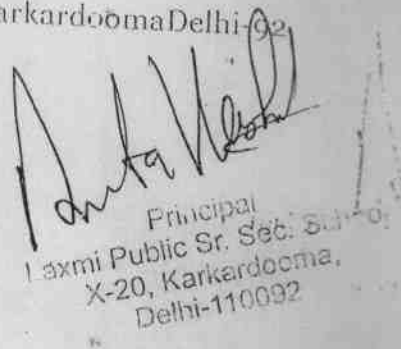 arkardoomaDelhi-92
Anita
Principal
Laxmi Public Sr. Sec. School
X-20, Karkardooma,
Delhi-110092